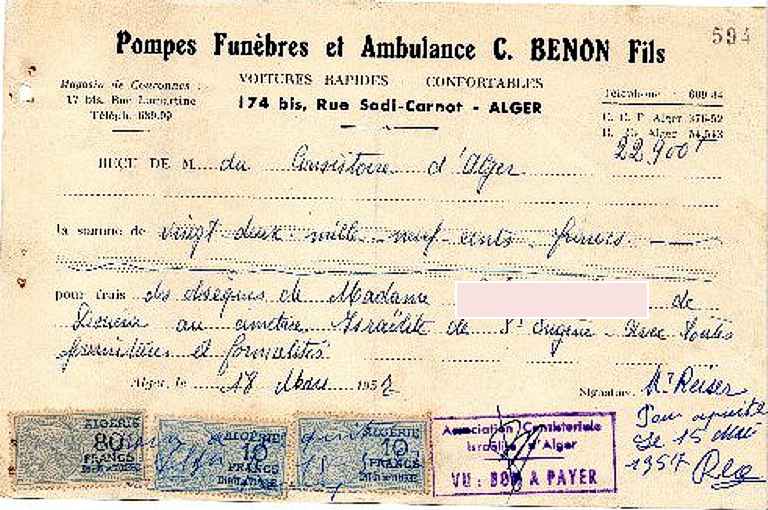 594
Pompes Funèbres et Ambulance C. BENON Fils
VOITURES RAPIDES - CONFORTABLES
174 bis, Rue Sadi-Carnot - ALGER
Magasin de Couronnes :
17 bis, Rue Lamartine
Téléph. 639.09
Téléphone : 609-44
C. C. P. Alger 376-52
R. C. Alger 54.543
22 900 F
REÇU DE M. du Consistoire d'Alger
la somme de vingt deux mille neuf cents francs
pour frais des obsèques de Madame
de
au cimetière Israélite de St Eugène - avec toutes
fournitures et formalités
Alger, le 18 Mars 1957
Signature.
Mr Reiser
Pour acquit
Le 15 Mai
1957
ALGÉRIE
80
FRANCS
DIMENSION
ALGÉRIE
10
FRANCS
DIMENSION
ALGÉRIE
10
FRANCS
DIMENSION
Association Consistoriale
Israélite d'Alger
VU : BON A PAYER